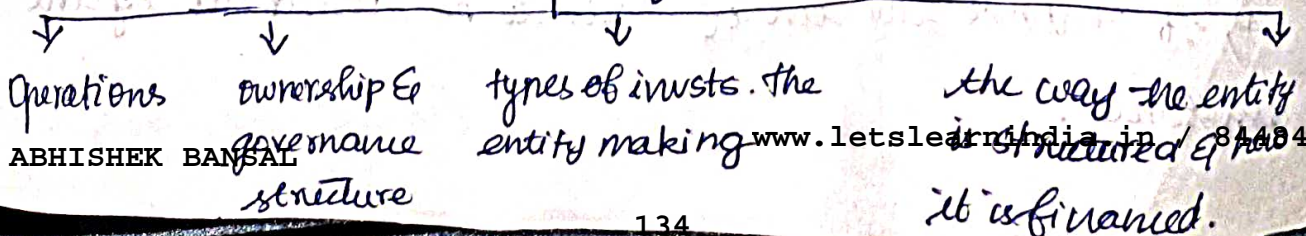 Operations
ownership &
governance
structure
types of invsts. the
entity making
the way the entity
is structured & how
it is financed.
ABHISHEK BANSAL
www.letslearnindia.in / 84484
134